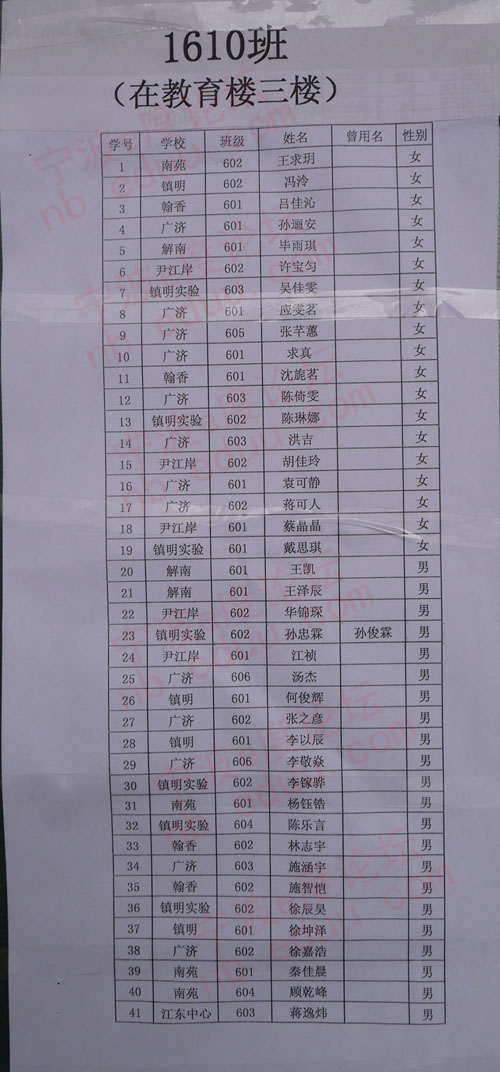 1610班
(在教育楼三楼)
学号 学校 班级 姓名 曾用名 性别
1 南苑 602 王求玥 女
2 镇明 602 冯泠 女
3 翰香 601 吕佳沁 女
4 广济 601 孙逦安 女
5 解南 601 毕雨琪 女
6 尹江岸 602 许宝匀 女
7 镇明实验 603 吴佳雯 女
8 广济 601 应雯茗 女
9 广济 605 张芊蕙 女
10 广济 601 求真 女
11 翰香 601 沈旎茗 女
12 广济 603 陈倚雯 女
13 镇明实验 602 陈琳娜 女
14 广济 603 洪吉 女
15 尹江岸 602 胡佳玲 女
16 广济 601 袁可静 女
17 广济 602 蒋可人 女
18 尹江岸 601 蔡晶晶 女
19 镇明实验 601 戴思琪 女
20 解南 601 王凯 男
21 解南 601 王泽辰 男
22 尹江岸 602 华锦琛 男
23 镇明实验 602 孙忠霖 孙俊霖 男
24 尹江岸 601 江祯 男
25 广济 606 汤杰 男
26 镇明 601 何俊辉 男
27 广济 602 张之彦 男
28 镇明 601 李以辰 男
29 广济 606 李敬焱 男
30 镇明实验 602 李镓骅 男
31 南苑 601 杨钰锆 男
32 镇明实验 604 陈乐言 男
33 翰香 602 林志宇 男
34 广济 603 施涵宇 男
35 翰香 602 施智恺 男
36 镇明实验 602 徐辰昊 男
37 镇明 601 徐坤泽 男
38 广济 602 徐嘉浩 男
39 南苑 601 秦佳晨 男
40 南苑 604 顾乾峰 男
41 江东中心 603 蒋逸炜 男